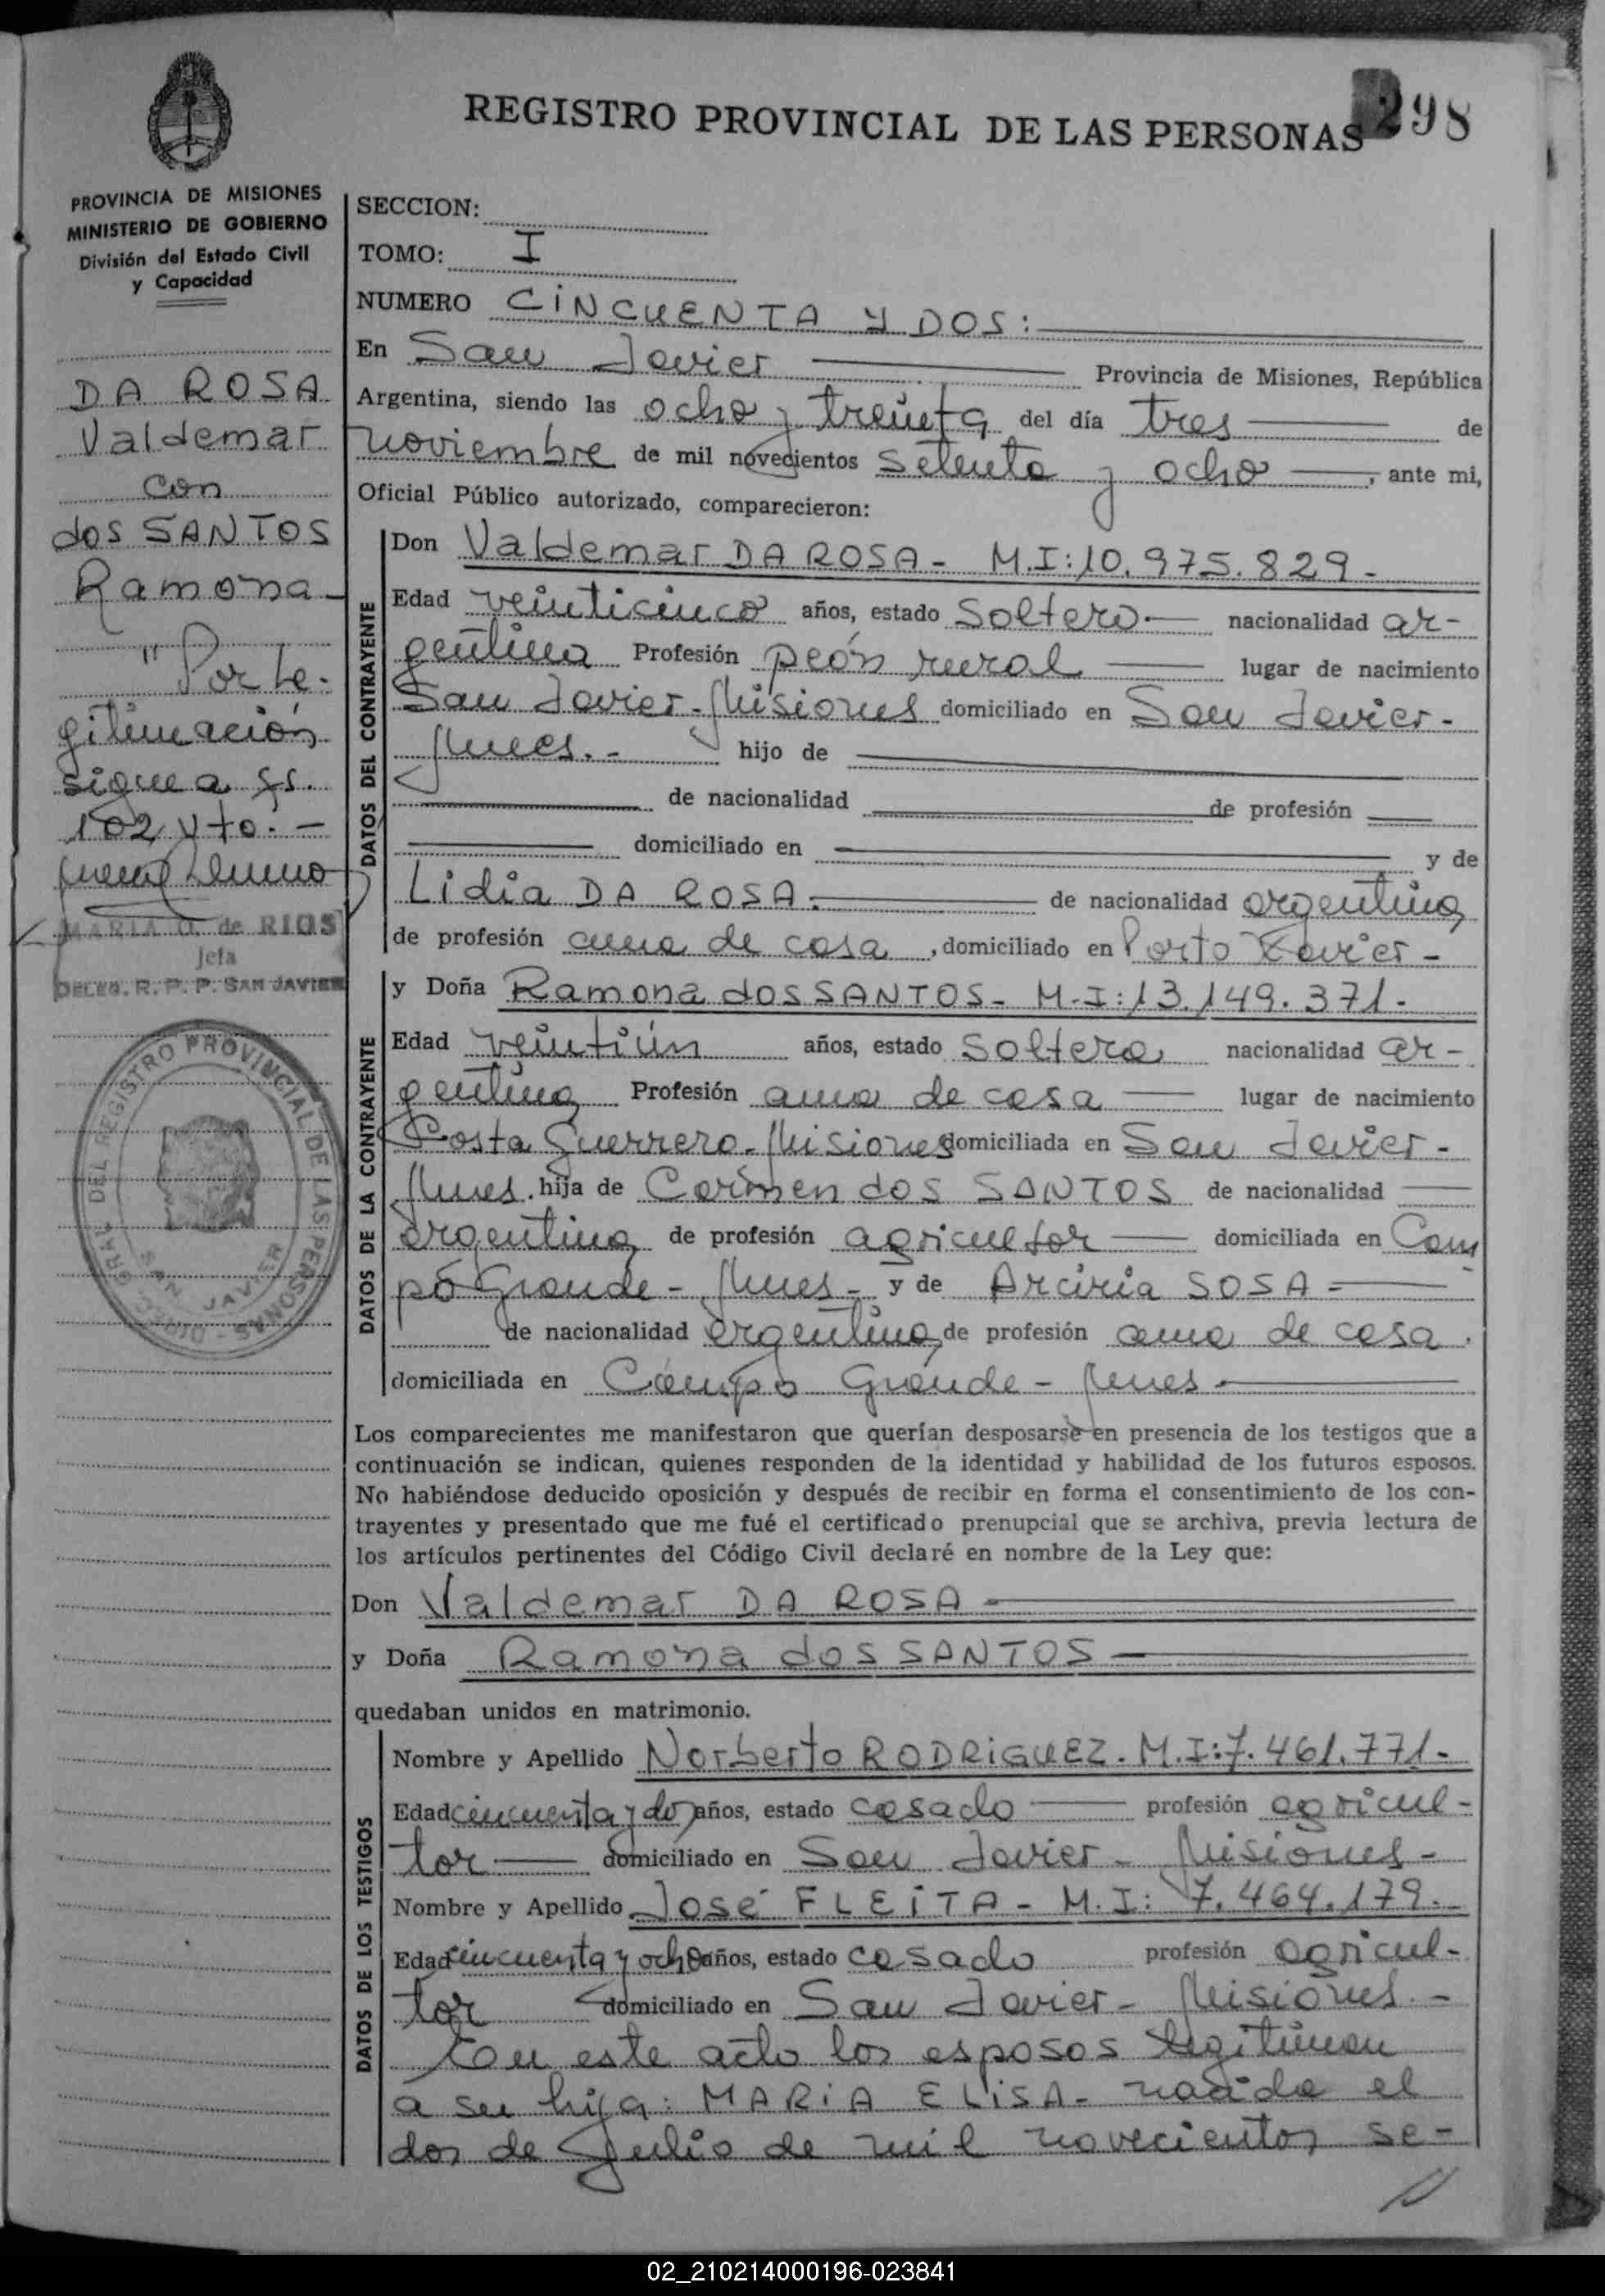 REGISTRO PROVINCIAL DE LAS PERSONAS 298
PROVINCIA DE MISIONES
MINISTERIO DE GOBIERNO
División del Estado Civil
y Capacidad
DA ROSA
Valdemar
con
dos SANTOS
Ramona-
"Por le-
gitimación
sigue a fs.
102 vto.-
MARIA O. de RIOS
Jefa
DELEG. R. P. P. SAN JAVIER
DIREC. GRAL. DEL REGISTRO PROVINCIAL DE LAS PERSONAS
SAN JAVIER
SECCION:
TOMO: I
NUMERO CINCUENTA Y DOS:
En San Javier Provincia de Misiones, República
Argentina, siendo las ocho y treinta del día tres de
noviembre de mil novecientos setenta y ocho, ante mi,
Oficial Público autorizado, comparecieron:
DATOS DEL CONTRAYENTE
Don Valdemar DA ROSA- M.I:10.975.829-
Edad veinticinco años, estado soltero- nacionalidad ar-
gentina Profesión peón rural lugar de nacimiento
San Javier-Misiones domiciliado en San Javier-
Mnes.- hijo de
de nacionalidad de profesión
domiciliado en y de
Lidia DA ROSA. de nacionalidad argentina
de profesión ama de casa, domiciliado en Porto Xavier-
DATOS DE LA CONTRAYENTE
y Doña Ramona dos SANTOS- M.I:13.149.371.
Edad veintiún años, estado soltera nacionalidad ar-
gentina Profesión ama de casa lugar de nacimiento
Costa Guerrero-Misiones domiciliada en San Javier-
Mnes. hija de Carmen dos SANTOS de nacionalidad
argentina de profesión agricultor domiciliada en Cam
po Grande- Mnes- y de Arciria SOSA-
de nacionalidad argentina, de profesión ama de casa.
domiciliada en Campo Grande- Mnes-
Los comparecientes me manifestaron que querían desposarse en presencia de los testigos que a
continuación se indican, quienes responden de la identidad y habilidad de los futuros esposos.
No habiéndose deducido oposición y después de recibir en forma el consentimiento de los con-
trayentes y presentado que me fué el certificado prenupcial que se archiva, previa lectura de
los artículos pertinentes del Código Civil declaré en nombre de la Ley que:
Don Valdemar DA ROSA-
y Doña Ramona dos SANTOS
quedaban unidos en matrimonio.
DATOS DE LOS TESTIGOS
Nombre y Apellido Norberto RODRIGUEZ. M.I:7.461.771-
Edad cincuenta y dos años, estado casado profesión agricul-
tor domiciliado en San Javier- Misiones-
Nombre y Apellido José FLEITA- M.I: 7.464.179.
Edad cincuenta y ocho años, estado casado profesión agricul-
tor domiciliado en San Javier- Misiones.-
Con este acto los esposos legitiman
a su hija: MARIA ELISA- nacida el
dos de Julio de mil novecientos se-
02_210214000196-023841